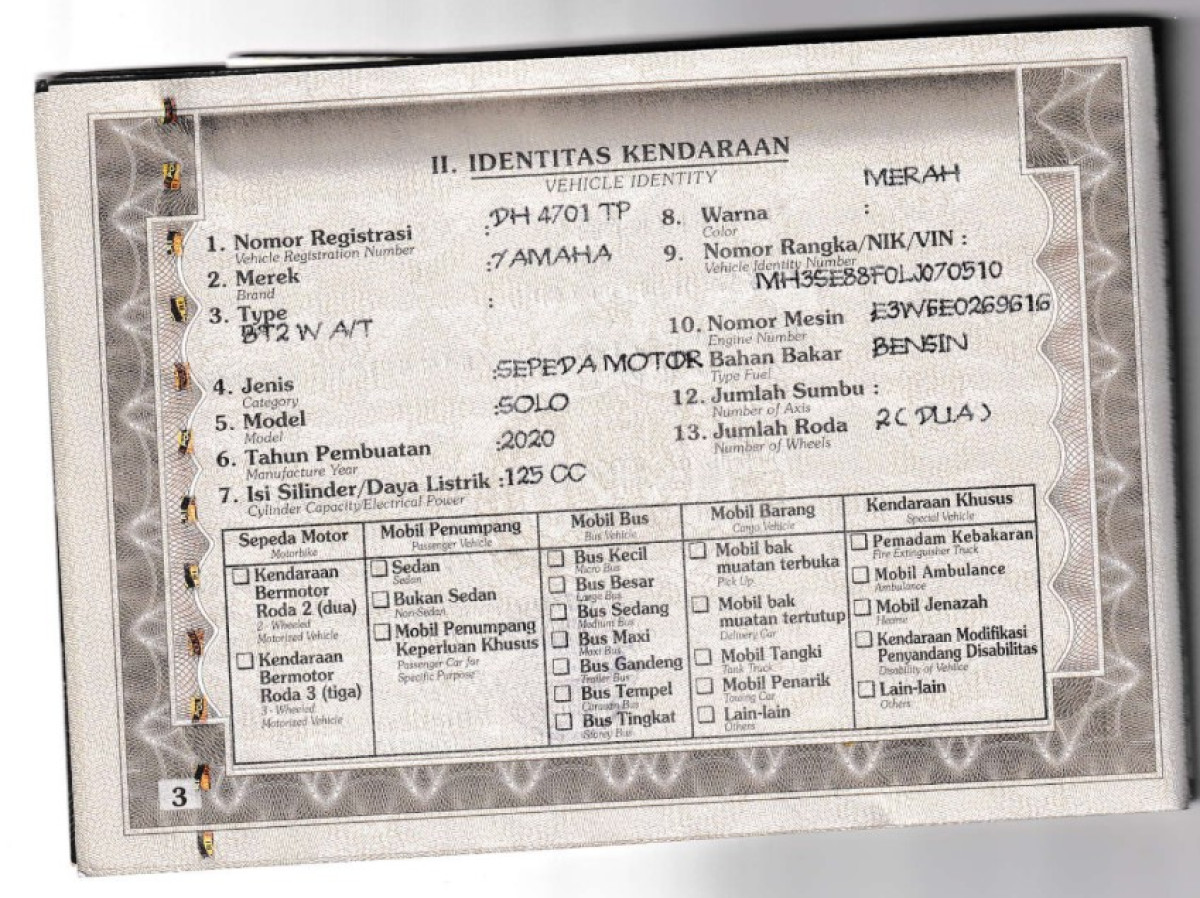 II. IDENTITAS KENDARAAN
VEHICLE IDENTITY
1. Nomor Registrasi : DH 4701 TP
Vehicle Registration Number
2. Merek : YAMAHA
Brand
3. Type :
BT2 W A/T
4. Jenis : SEPEDA MOTOR
Category
5. Model : SOLO
Model
6. Tahun Pembuatan : 2020
Manufacture Year
7. Isi Silinder/Daya Listrik : 125 CC
Cylinder Capacity/Electrical Power
8. Warna : MERAH
Color
9. Nomor Rangka/NIK/VIN :
Vehicle Identity Number
MH3SE88F0LJ070510
10. Nomor Mesin E3W6E0269616
Engine Number
Bahan Bakar BENSIN
Type Fuel
12. Jumlah Sumbu :
Number of Axis
13. Jumlah Roda 2 ( DUA )
Number of Wheels
Sepeda Motor
Motorbike
Kendaraan
Bermotor
Roda 2 (dua)
2 - Wheeled
Motorized Vehicle
Kendaraan
Bermotor
Roda 3 (tiga)
3 - Wheeled
Motorized Vehicle
Mobil Penumpang
Passenger Vehicle
Sedan
Sedan
Bukan Sedan
Non-Sedan
Mobil Penumpang
Keperluan Khusus
Passenger Car for
Specific Purpose
Mobil Bus
Bus Vehicle
Bus Kecil
Micro Bus
Bus Besar
Large Bus
Bus Sedang
Medium Bus
Bus Maxi
Maxi Bus
Bus Gandeng
Trailer Bus
Bus Tempel
Caravan Bus
Bus Tingkat
Storey Bus
Mobil Barang
Cargo Vehicle
Mobil bak
muatan terbuka
Pick Up
Mobil bak
muatan tertutup
Delivery Car
Mobil Tangki
Tank Truck
Mobil Penarik
Towing Car
Lain-lain
Others
Kendaraan Khusus
Special Vehicle
Pemadam Kebakaran
Fire Extinguisher Truck
Mobil Ambulance
Ambulance
Mobil Jenazah
Hearse
Kendaraan Modifikasi
Penyandang Disabilitas
Disability of Vehilce
Lain-lain
Others
3